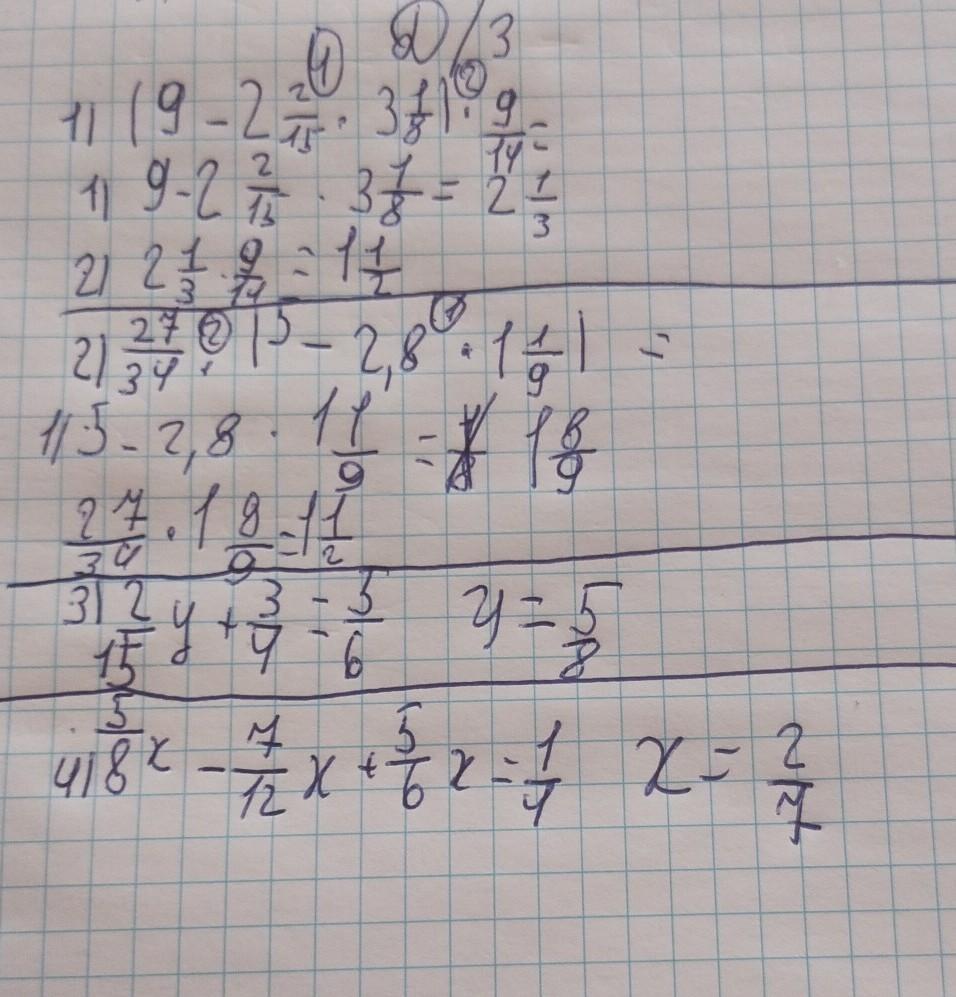 ② / 3
1) (9 - 2 2/15 ·① 3 1/8) ·② 9/14 =
1) 9 - 2 2/15 · 3 1/8 = 2 1/3
2) 2 1/3 · 9/14 = 1 1/2
2) 27/34 ·② (5 - 2,8 ·① 1 1/9) =
1) 5 - 2,8 · 1 1/9 = 1 8/9
27/34 · 1 8/9 = 1 1/2
3) 2/15 y + 3/4 = 5/6 y = 5/8
4) 5/8 x - 7/12 x + 5/6 x = 1/4 x = 2/7